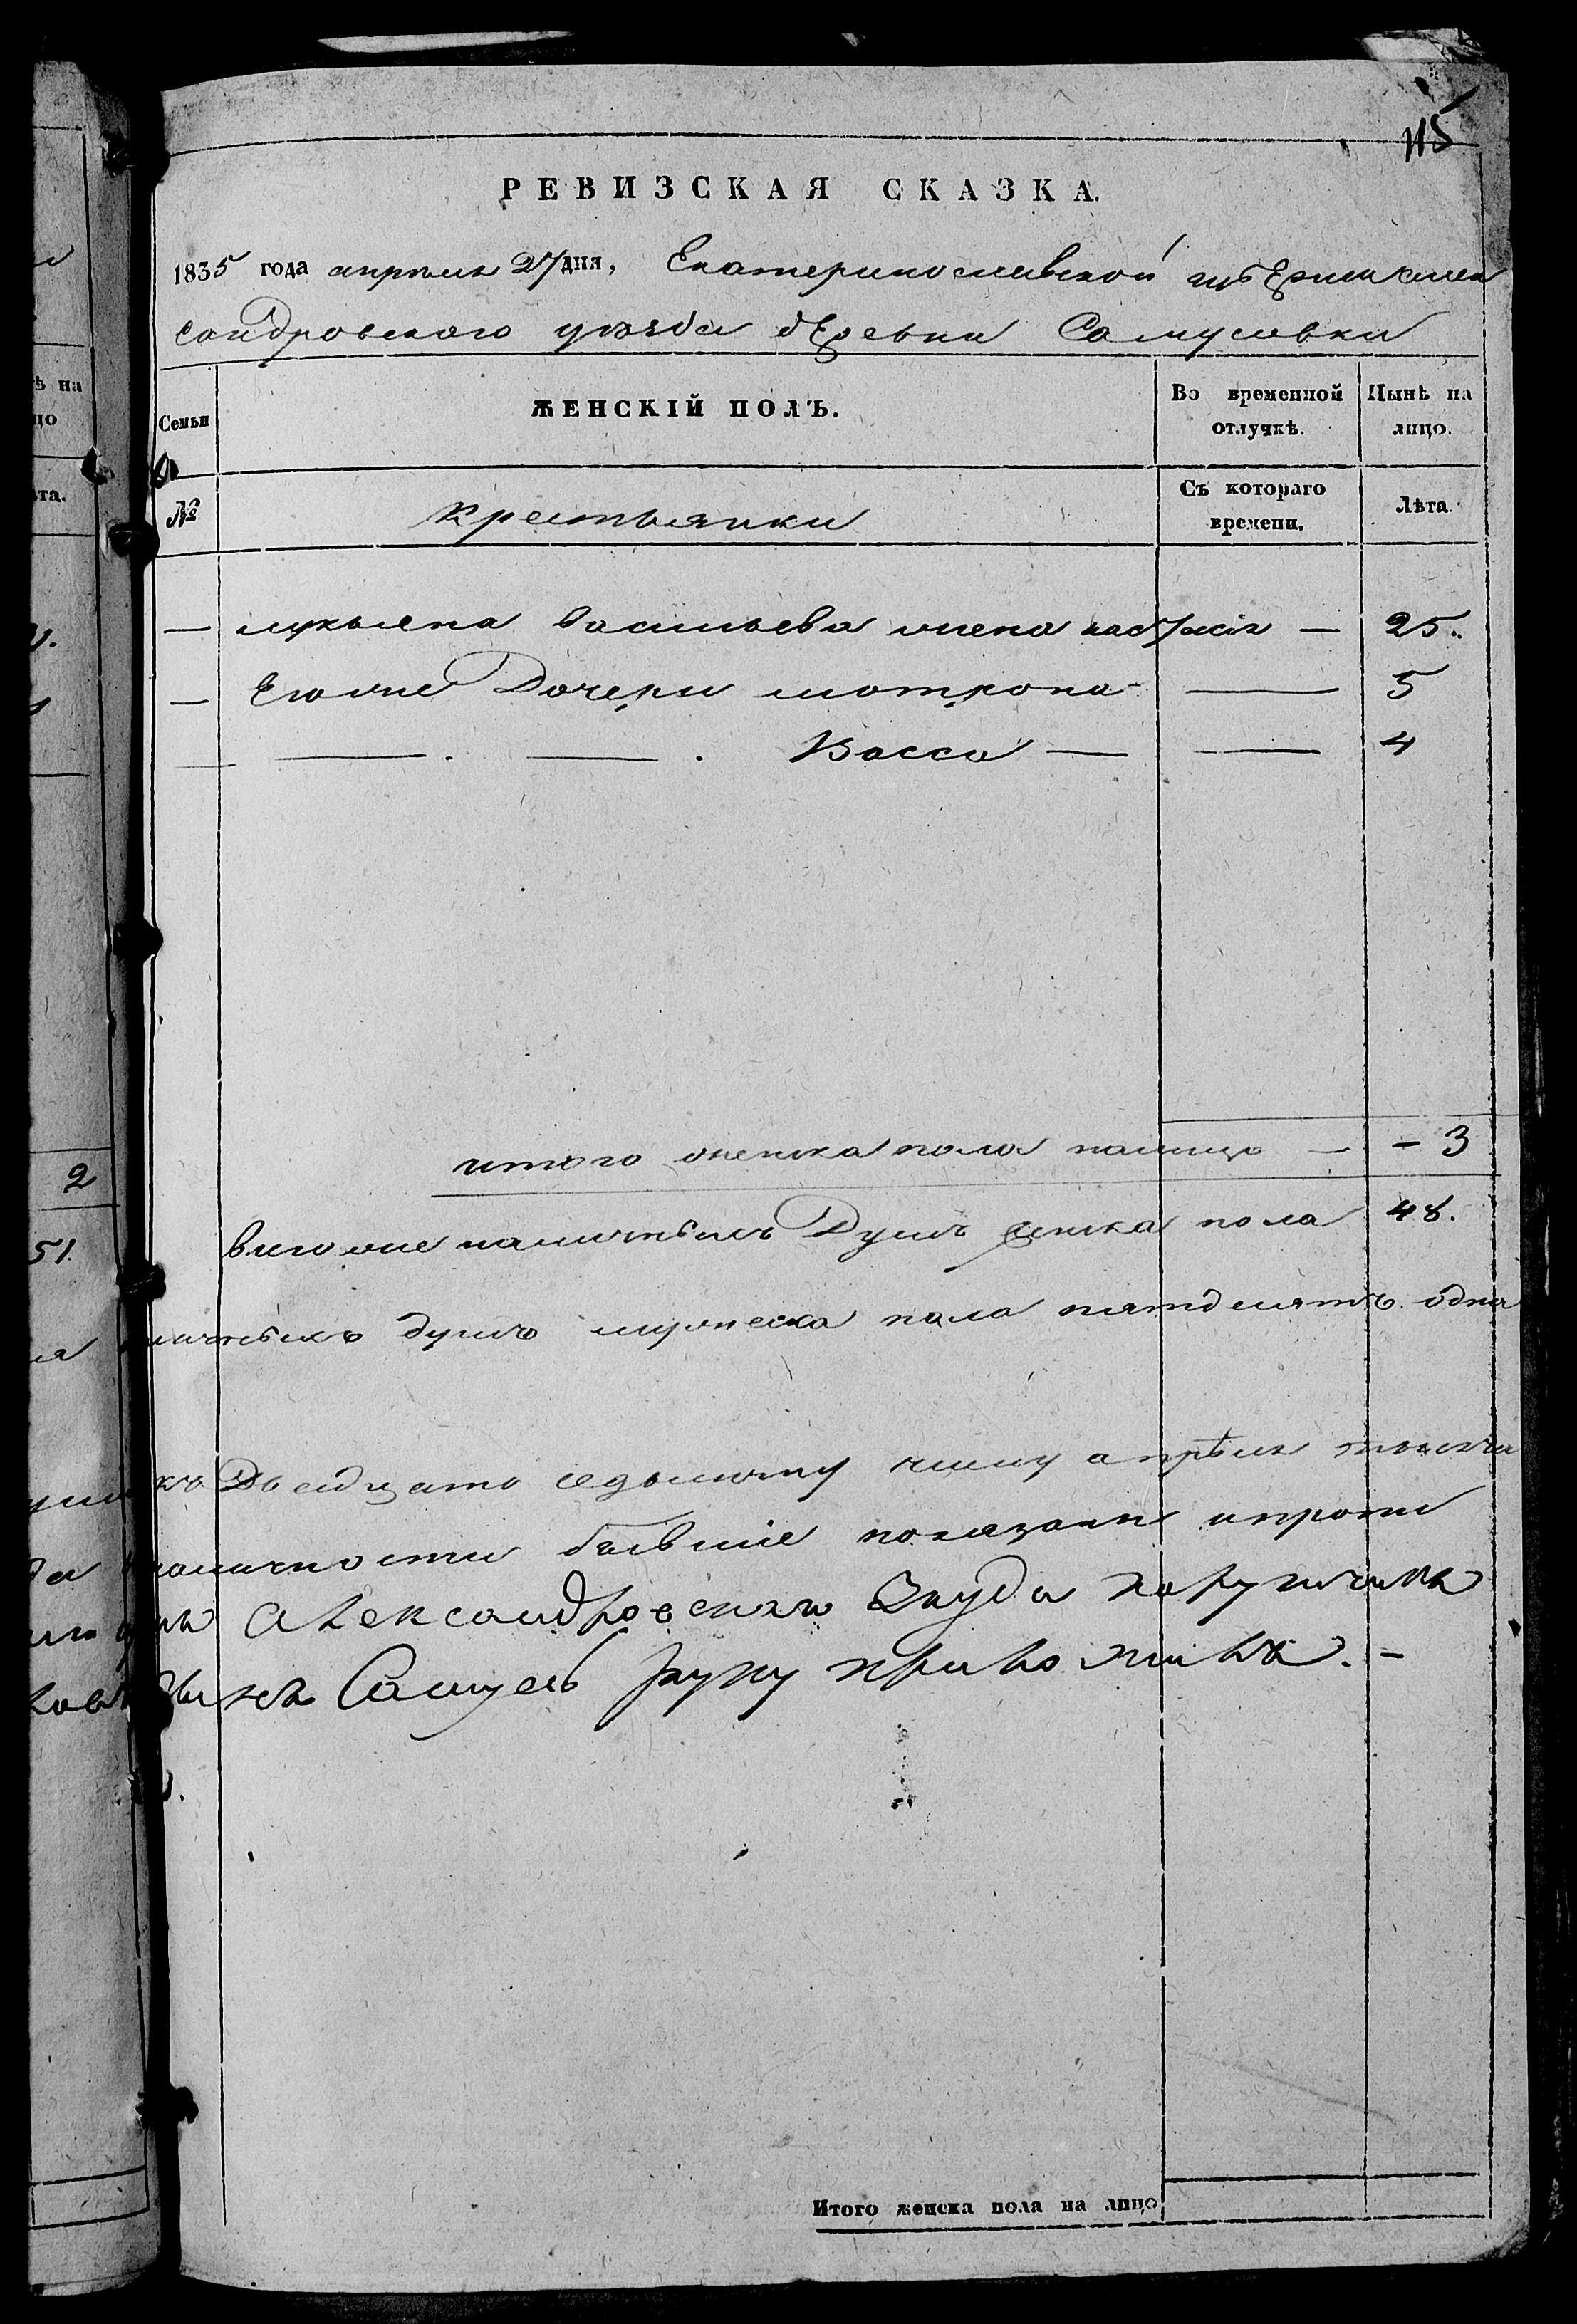 115
РЕВИЗСКАЯ СКАЗКА.
1835 года апреля 27 дня, Екатеринославской губЕрнии алек
сандровского уезда дЕревни Самусовки
Семьи
ЖЕНСКІЙ ПОЛЪ.
Во временной отлучкѣ.
Нынѣ на лицо.
№
крестьянки
Съ котораго времени.
Лѣта.
— лукьяна васильева жена настасія — 25.
— Егоже Дочери мотрона — 5
— — . — . Васса — — 4
итого женска пола налицо — - 3
всегоже наличныхъ Душъ женска пола 48.
личныхъ душъ мужеска пола пятдесятъ одна
къ Двадцать седьмому числу апрѣля тысяча
наличности бывшіе показаны ипроти
Александровскаго Уезда порутчикъ
Самусь руку приложилъ. -
Итого женска пола на лицо
2
51.